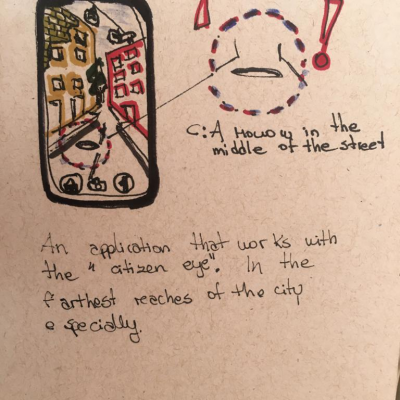 C: A Hollow in the
middle of the street
An application that works with
the "citizen eye". In the
farthest reaches of the city
especially.